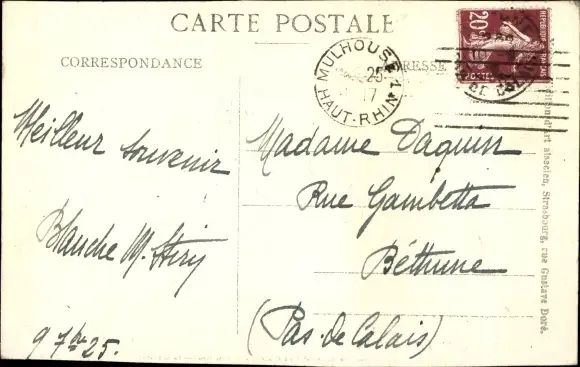 CARTE POSTALE
CORRESPONDANCE
MULHOUSE
25
17
HAUT-RHIN
20c
POSTES
Meilleur souvenir
Blanche M.
9 7bre 25.
Madame Daquin
Rue Gambetta
Béthune
(Pas-de-Calais)
d'art alsacien, Strasbourg, rue Gustave Doré.